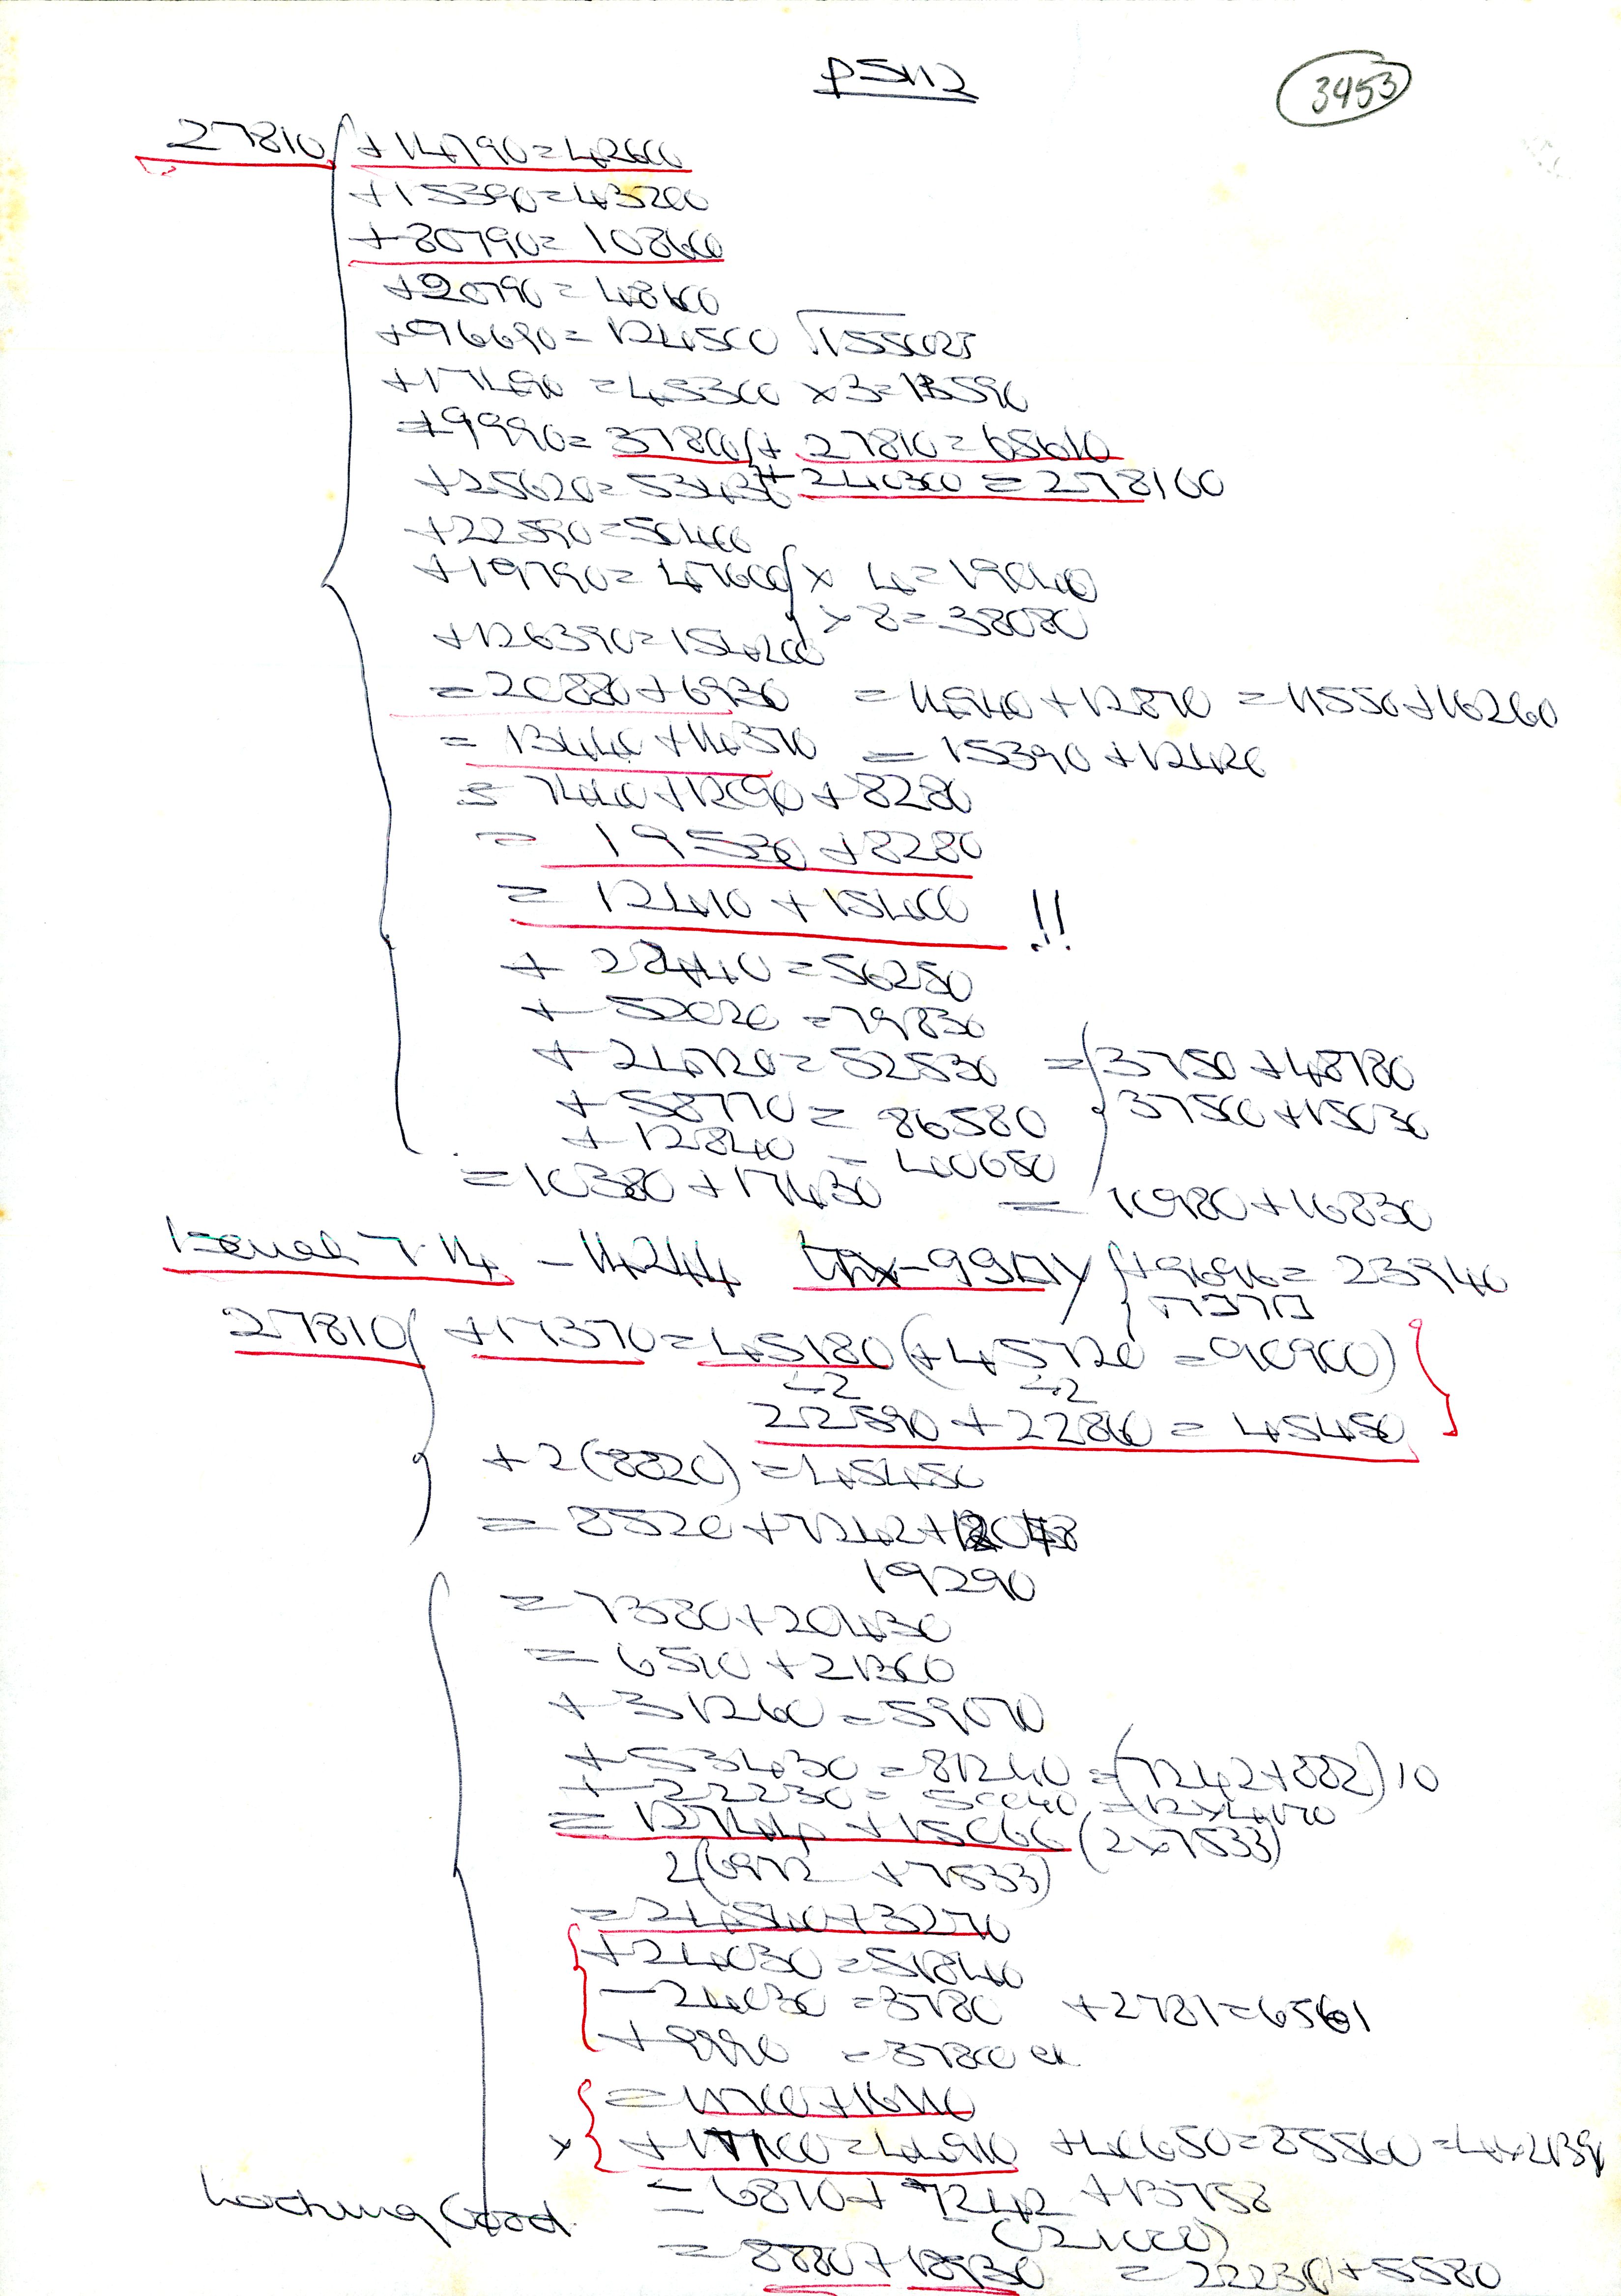 PS112
3453
27810 +14790=42600
+15390=43200
+80790=108600
+20790=48600
+96690=124500 √155025
+17490=45300 ×3=13590
+9990=37800 + 27810=65610
+25620=53430 + 240300=278100
+22590=50400
+19790=47600 × 4=19040
× 8=38080
+126390=154200
=20880+6930 =14940+12870 =11550+16260
=13440+14370 =15390+12420
=7440+12090+8280
= 19530+8280
= 12410+15400 !!
+ 28440=56250
+ 52020=79830
+ 24720=52530 = 3750+48780
+ 58770=86580 37500+15030
+ 12840=40650
=10380+17430 = 10980+16830
7.14 -14244 +9696=23940
27810 +17370=45180(+45720=90900)
÷2 ÷2
22590+22860=45450
+2(8820)=45450
=8520+7242+12048
19290
=7380+20430
=6510+21300
+31260=59070
+53430=81240=(7242+882)10
+22230=50040=12×4170
=12744+15066(2×7533)
2(6372+7533)
=24540+3270
+24030=51840
-24030=3780 +2781=6561
+9990=37800
=11700+16110
× +17100=44910 +40650=85560=4×21390
=6810+7242+13758
(21000)
=8880+18930 =22230+5580